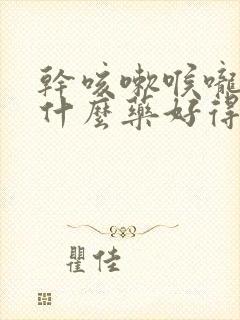 幹咳嗽喉嚨
什麼藥好得
瞿佳